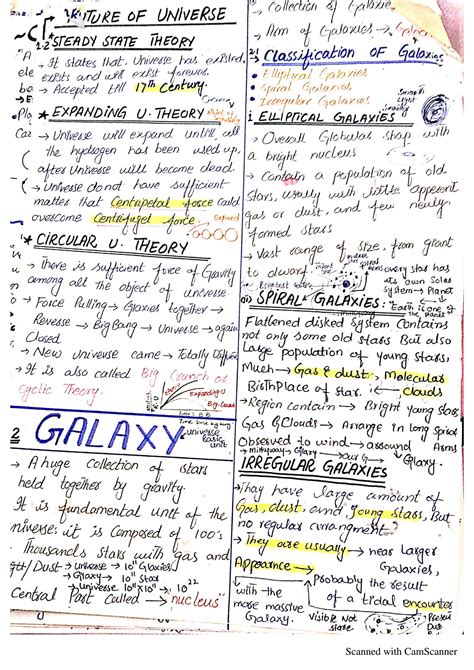 TURE OF UNIVERSE
1.2 * STEADY STATE THEORY
→ It states that Universe has existed,
exists and will exist forever.
→ Accepted till 17th Century.
* EXPANDING U. THEORY
→ Universe will expand untill all
the hydrogen has been used up,
after Universe will become dead.
→ Universe do not have sufficient
matter that Centripetal force could
overcome Centrifugel force.
* CIRCULAR U. THEORY
→ There is sufficient force of Gravity
among all the object of universe
→ Force Pulling → Gaxies together →
Reverse → Big Bang → Universe → again
Closed.
→ New universe came → Totally
→ It is also called Big Crunch or
cyclic Theory.
Expanding U
2 GALAXY
universe
Basic
unit
→ A huge collection of stars
held together by gravity.
It is fundamental unit of the
universe; it is composed of 100's
Thousands stars with gas and
Dust → universe → 10¹¹ Galaxies
→ Glaxy → 10¹¹ Star
→ Universe 10¹¹×10¹¹ → 10²²
Central Part Called → nucleus"
Collection of Galaxie
→ Arm of Galaxies →
2.1 → Classification OF Galaxies
• Elliptical Galaxies
• Spiral Galaxies
• Irregular Galaxies
i. ELLIPTICAL GALAXIES
→ Overall Globulas shap with
a bright nucleus
→ Contain a population of old
stars, usually with little apperent
gas or dust, and few newly
formed stars
→ Vast range of size, from giant
to dwarf.
every star has
its own Solar
System → Planet
(ii) SPIRAL GALAXIES:
Flattened disked System Contains
not only some old stars But also
Large population of young stars.
Much → Gas & dust, Molecular
BirthPlace of star. ← Clouds
→ Region contain → Bright young stars
Gas & Clouds → Arrange in long Spiral
Observed to wind → arround Arms
Glaxy.
IRREGULAR GALAXIES
→ They have large amount of
Gas, dust, and young stars, But
no regular arrangment
→ They are usually → near Larger
Appearnce → Galaxies,
Probably the result
of a tidal encounter
with the
more massive
Galaxy.
Visible Not
state
Scanned with CamScanner